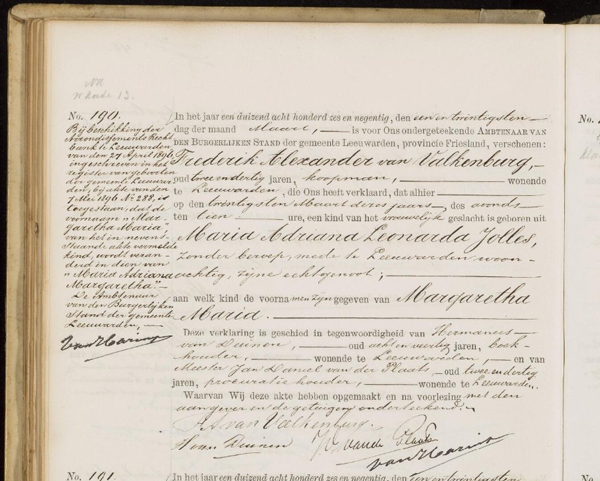 No. 190.
Bij beschikking der
Arrondissements Recht
bank te Leeuwarden
van den 27 April 1896,
ingeschreven in het
register van geboorten
der gemeente Leeuwar
den, bij akte van den
7 Mei 1896 No. 288, is
toegestaan, dat de
voornamen "Mar-
garetha Maria",
van het in neven-
staande akte vermelde
kind, wordt veran-
derd in dien van
"Maria Adriana
Margaretha".
De Ambtenaar
van den Burgerlijken
Stand der gemeente
Leeuwarden,
van Haring
In het jaar een duizend acht honderd zes en negentig, den een en twintigsten
dag der maand Maart, is voor Ons ondergeteekende AMBTENAAR VAN
DEN BURGERLIJKEN STAND der gemeente Leeuwarden, provincie Friesland, verschenen:
Frederik Alexander van Valkenburg,
oud twee en dertig jaren, koopman, wonende
te Leeuwarden, die Ons heeft verklaard, dat alhier
op den twintigsten Maart dezes jaars, des avonds
ten tien ure, een kind van het vrouwelijk geslacht is geboren uit
Maria Adriana Leonarda Jolles,
zonder beroep, mede te Leeuwarden woon-
achtig, zijne echtgenoot;
aan welk kind de voornamen zijn gegeven van Margaretha
Maria.
Deze verklaring is geschied in tegenwoordigheid van Hermanus
van Duinen, oud acht en veertig jaren, boek-
houder, wonende te Leeuwarden, en van
Meester Jan Daniel van der Plaats, oud twee en dertig
jaren, procuratie houder, wonende te Leeuwarden.
Waarvan Wij deze akte hebben opgemaakt en na voorlezing met den
aangever en de getuigen onderteekend.
F. A. van Valkenburg.
H van Duinen J D van der Plaats
van Haring
No. 191.
In het jaar een duizend acht honderd zes en negentig, den een en twintigsten
No.